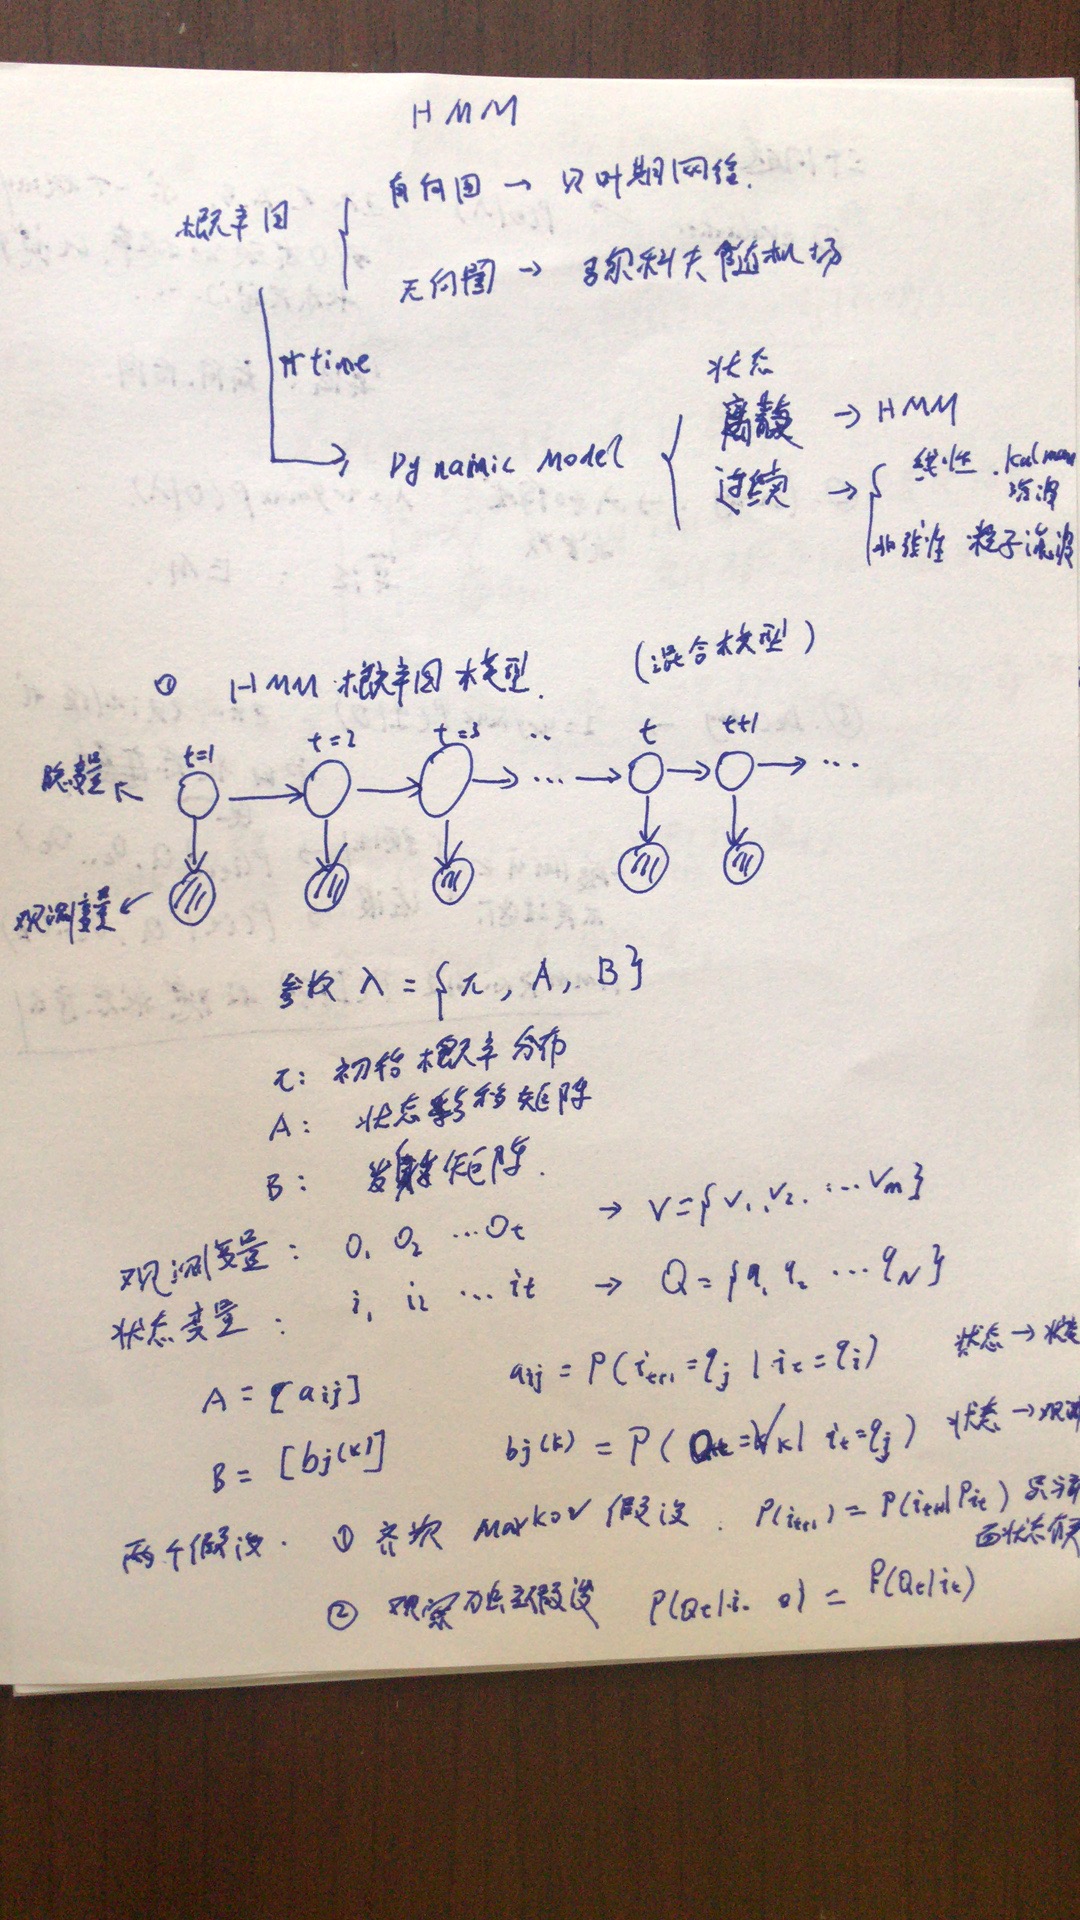 HMM
概率图 { 有向图 → 贝叶斯网络.
无向图 → 马尔科夫随机场
+ time
→ Dynamic Model {
状态
离散 → HMM
连续 → { 线性 . Kalman 滤波
非线性 粒子滤波
① HMM 概率图模型. (混合模型)
t=1 t=2 t=3 ‥ t t+1
隐变量 ← → → → … → → → …
观测变量 ←
参数 λ = {π, A, B}
π: 初始概率分布
A: 状态转移矩阵
B: 发射矩阵.
观测变量: O₁ O₂ …Oₜ → V={v₁, v₂. …vₘ}
状态变量: i₁ i₂ … iₜ → Q={q₁ q₂ … q_N}
A = [aij] aij = P(iₜ₊₁=qj | iₜ=qi) 状态→状态
B = [bj(k)] bj(k) = P(Oₜ=Vₖ | iₜ=qj) 状态→观测
两个假设. ① 齐次 Markov 假设. P(iₜ₊₁) = P(iₜ₊₁|Piₜ)
面状态有关
② 观察独立假设 P(Oₜ|i. o) = P(Oₜ|iₜ)